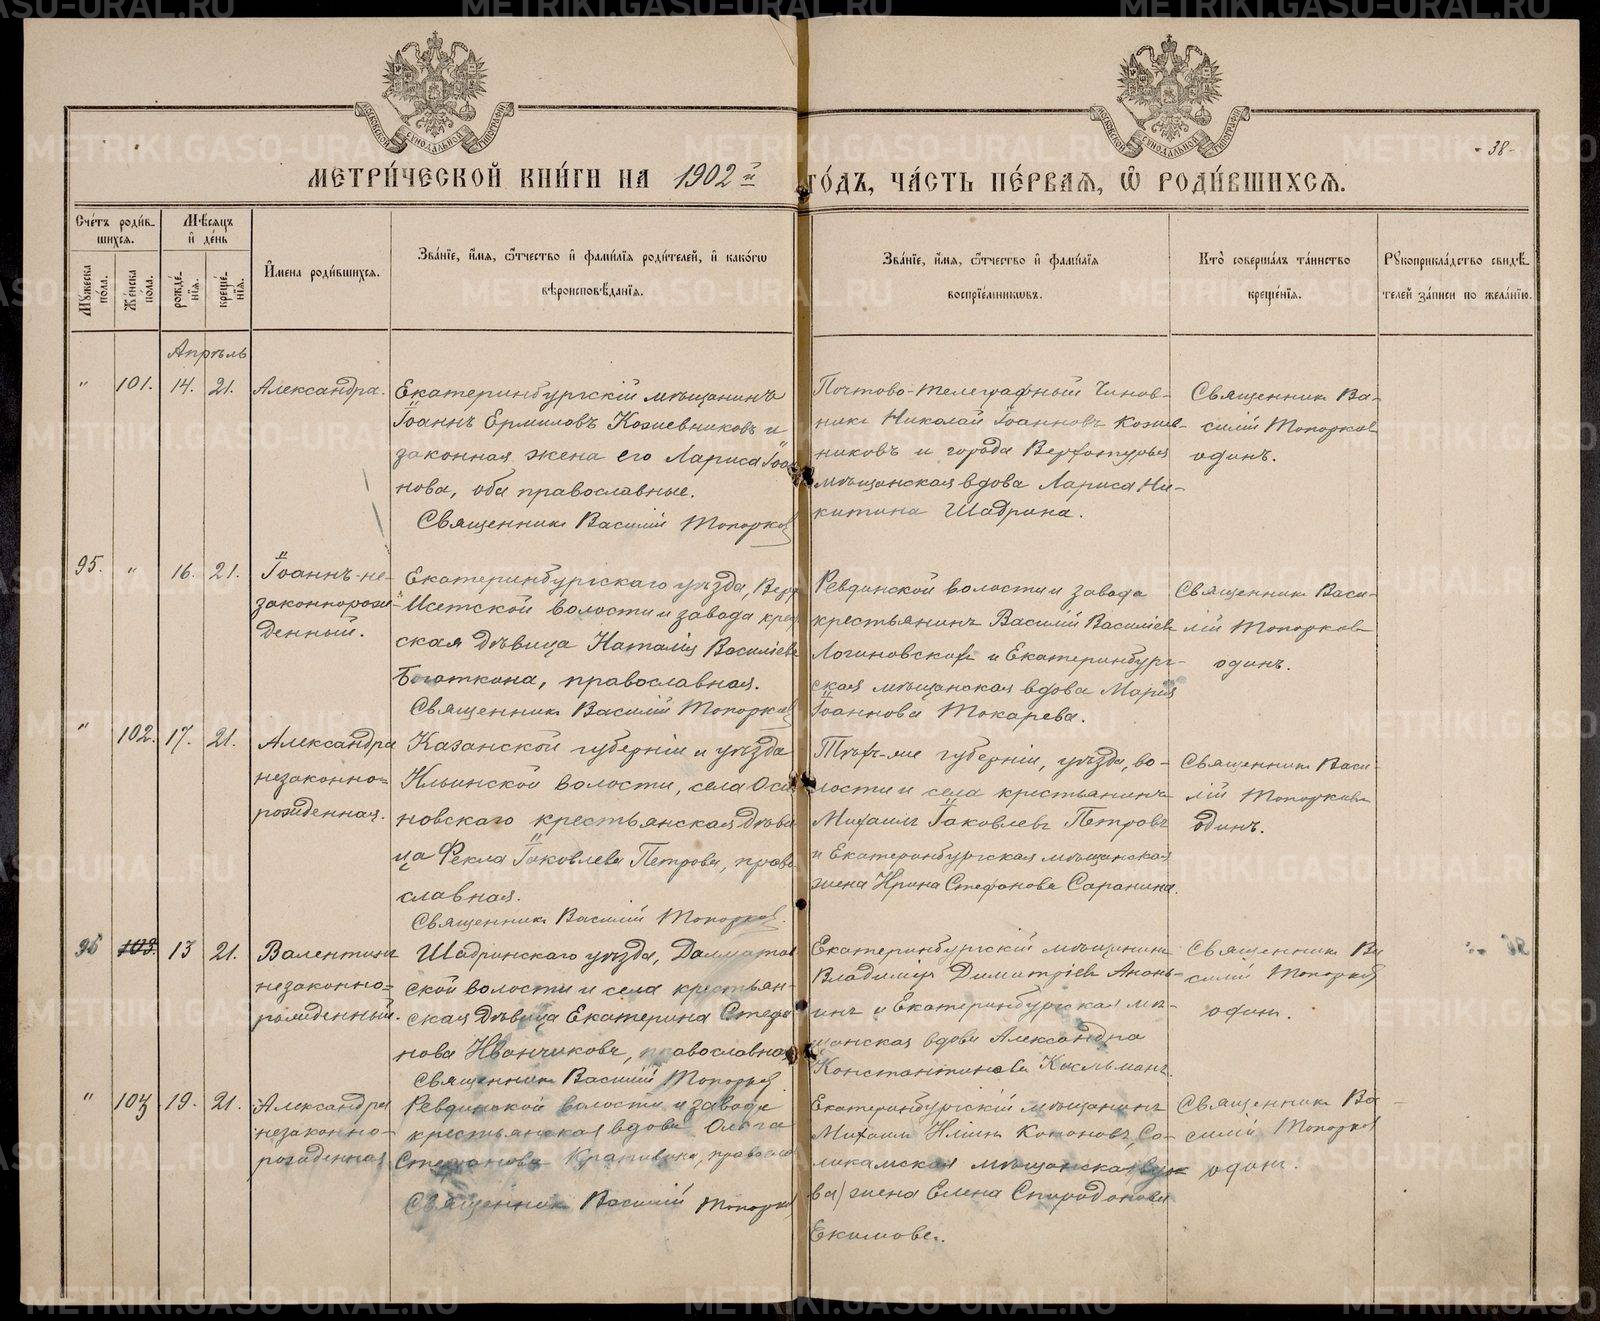 МОСКОВСКОЙ СѴНОДАЛЬНОЙ ТИПОГРАФІИ
МОСКОВСКОЙ СѴНОДАЛЬНОЙ ТИПОГРАФІИ
- 38 -
МЕТРИ́ЧЕСКОЙ КНИ́ГИ НА 1902й ГО́ДЪ, ЧА́СТЬ ПЕ́РВАѦ, Ѡ҆ РОДИ́ВШИХСѦ.
Сче́тъ роди́в-
шихсѧ.
Мѣ́сѧцъ
и҆ де́нь
Мꙋ́жеска
по́ла.
Же́нска
по́ла.
рожде́-
нїѧ.
креще́-
нїѧ.
И҆мена̀ роди́вшихсѧ.
Зва́нїе, и҆́мѧ, ѻ҆́тчество и҆ фами́лїѧ роди́телей, и҆ како́гѡ
вѣроисповѣ́данїѧ.
Зва́нїе, и҆́мѧ, ѻ҆́тчество и҆ фами́лїѧ
воспрїе́мникѡвъ.
Кто̀ соверша́лъ та́инство
креще́нїѧ.
Рꙋкоприкла́дство свидѣ́-
телей за́писи по жела́нїю.
Апрѣль
" 101. 14. 21. Александра.
Екатеринбургскій мѣщанинъ
Іоаннъ Ермиловъ Кожевниковъ и
законная жена его Лариса Іоан
нова, оба православные.
Священникъ Василій Топорков
Почтово-телеграфный Чинов-
никъ Николай Іоанновъ Кожев-
никовъ и города Верхотурья
мѣщанская вдова Лариса Ни-
китина Шадрина.
Священникъ Ва-
силій Топорковъ
одинъ.
95. " 16. 21. Іоаннъ-не-
законнорож-
денный.
Екатеринбургскаго уѣзда, Верх
Исетской волости и завода крес
ская дѣвица Наталія Василіева
Богаткина, православная.
Священникъ Василій Топорков
Ревдинской волости и завода
крестьянинъ Василій Василіевъ
Логиновскихъ и Екатеринбург-
ская мѣщанская вдова Марія
Іоаннова Токарева.
Священникъ Васи-
лій Топорковъ
одинъ.
" 102. 17. 21. Александра
незаконно-
рожденная.
Казанской губерніи и уѣзда
Ильинской волости, села Оси
новскаго крестьянская дѣви
ца Фекла Іаковлева Петрова, право
славная.
Священникъ Василій Топорков.
Тѣхъ-же губерніи, уѣзда, во-
лости и села крестьянинъ
Михаилъ Іаковлевъ Петровъ
и Екатеринбургская мѣщанская
жена Ирина Стефанова Саранина.
Священникъ Васи-
лій Топорковъ
одинъ.
96 103. 13 21. Валентинъ
незаконно-
рожденный.
Шадринскаго уѣзда, Далматов
ской волости и села крестьян-
ская дѣвица Екатерина Стефа
нова Иванчиковъ, православная
Священникъ Василій Топорков.
Екатеринбургскій мѣщанинъ
Владиміръ Димитріевъ Анань-
инъ и Екатеринбургская мѣ-
щанская вдова Александра
Константинова Касьманъ.
Священникъ Ва
силій Топорков
одинъ.
" 103 19. 21. Александра
незаконно-
рожденная
Ревдинской волости и завода
крестьянская вдова Ольга
Стефанова Крапивина, православ
Священникъ Василій Топорков
Екатеринбургскій мѣщанинъ
Михаилъ Иліинъ Конановъ, Со-
ликамская мѣщанская
ва) жена Елена Спиридонова
Екимова.
Священникъ Ва-
силій Топорков
одинъ.
METRIKI.GASO-URAL.RU